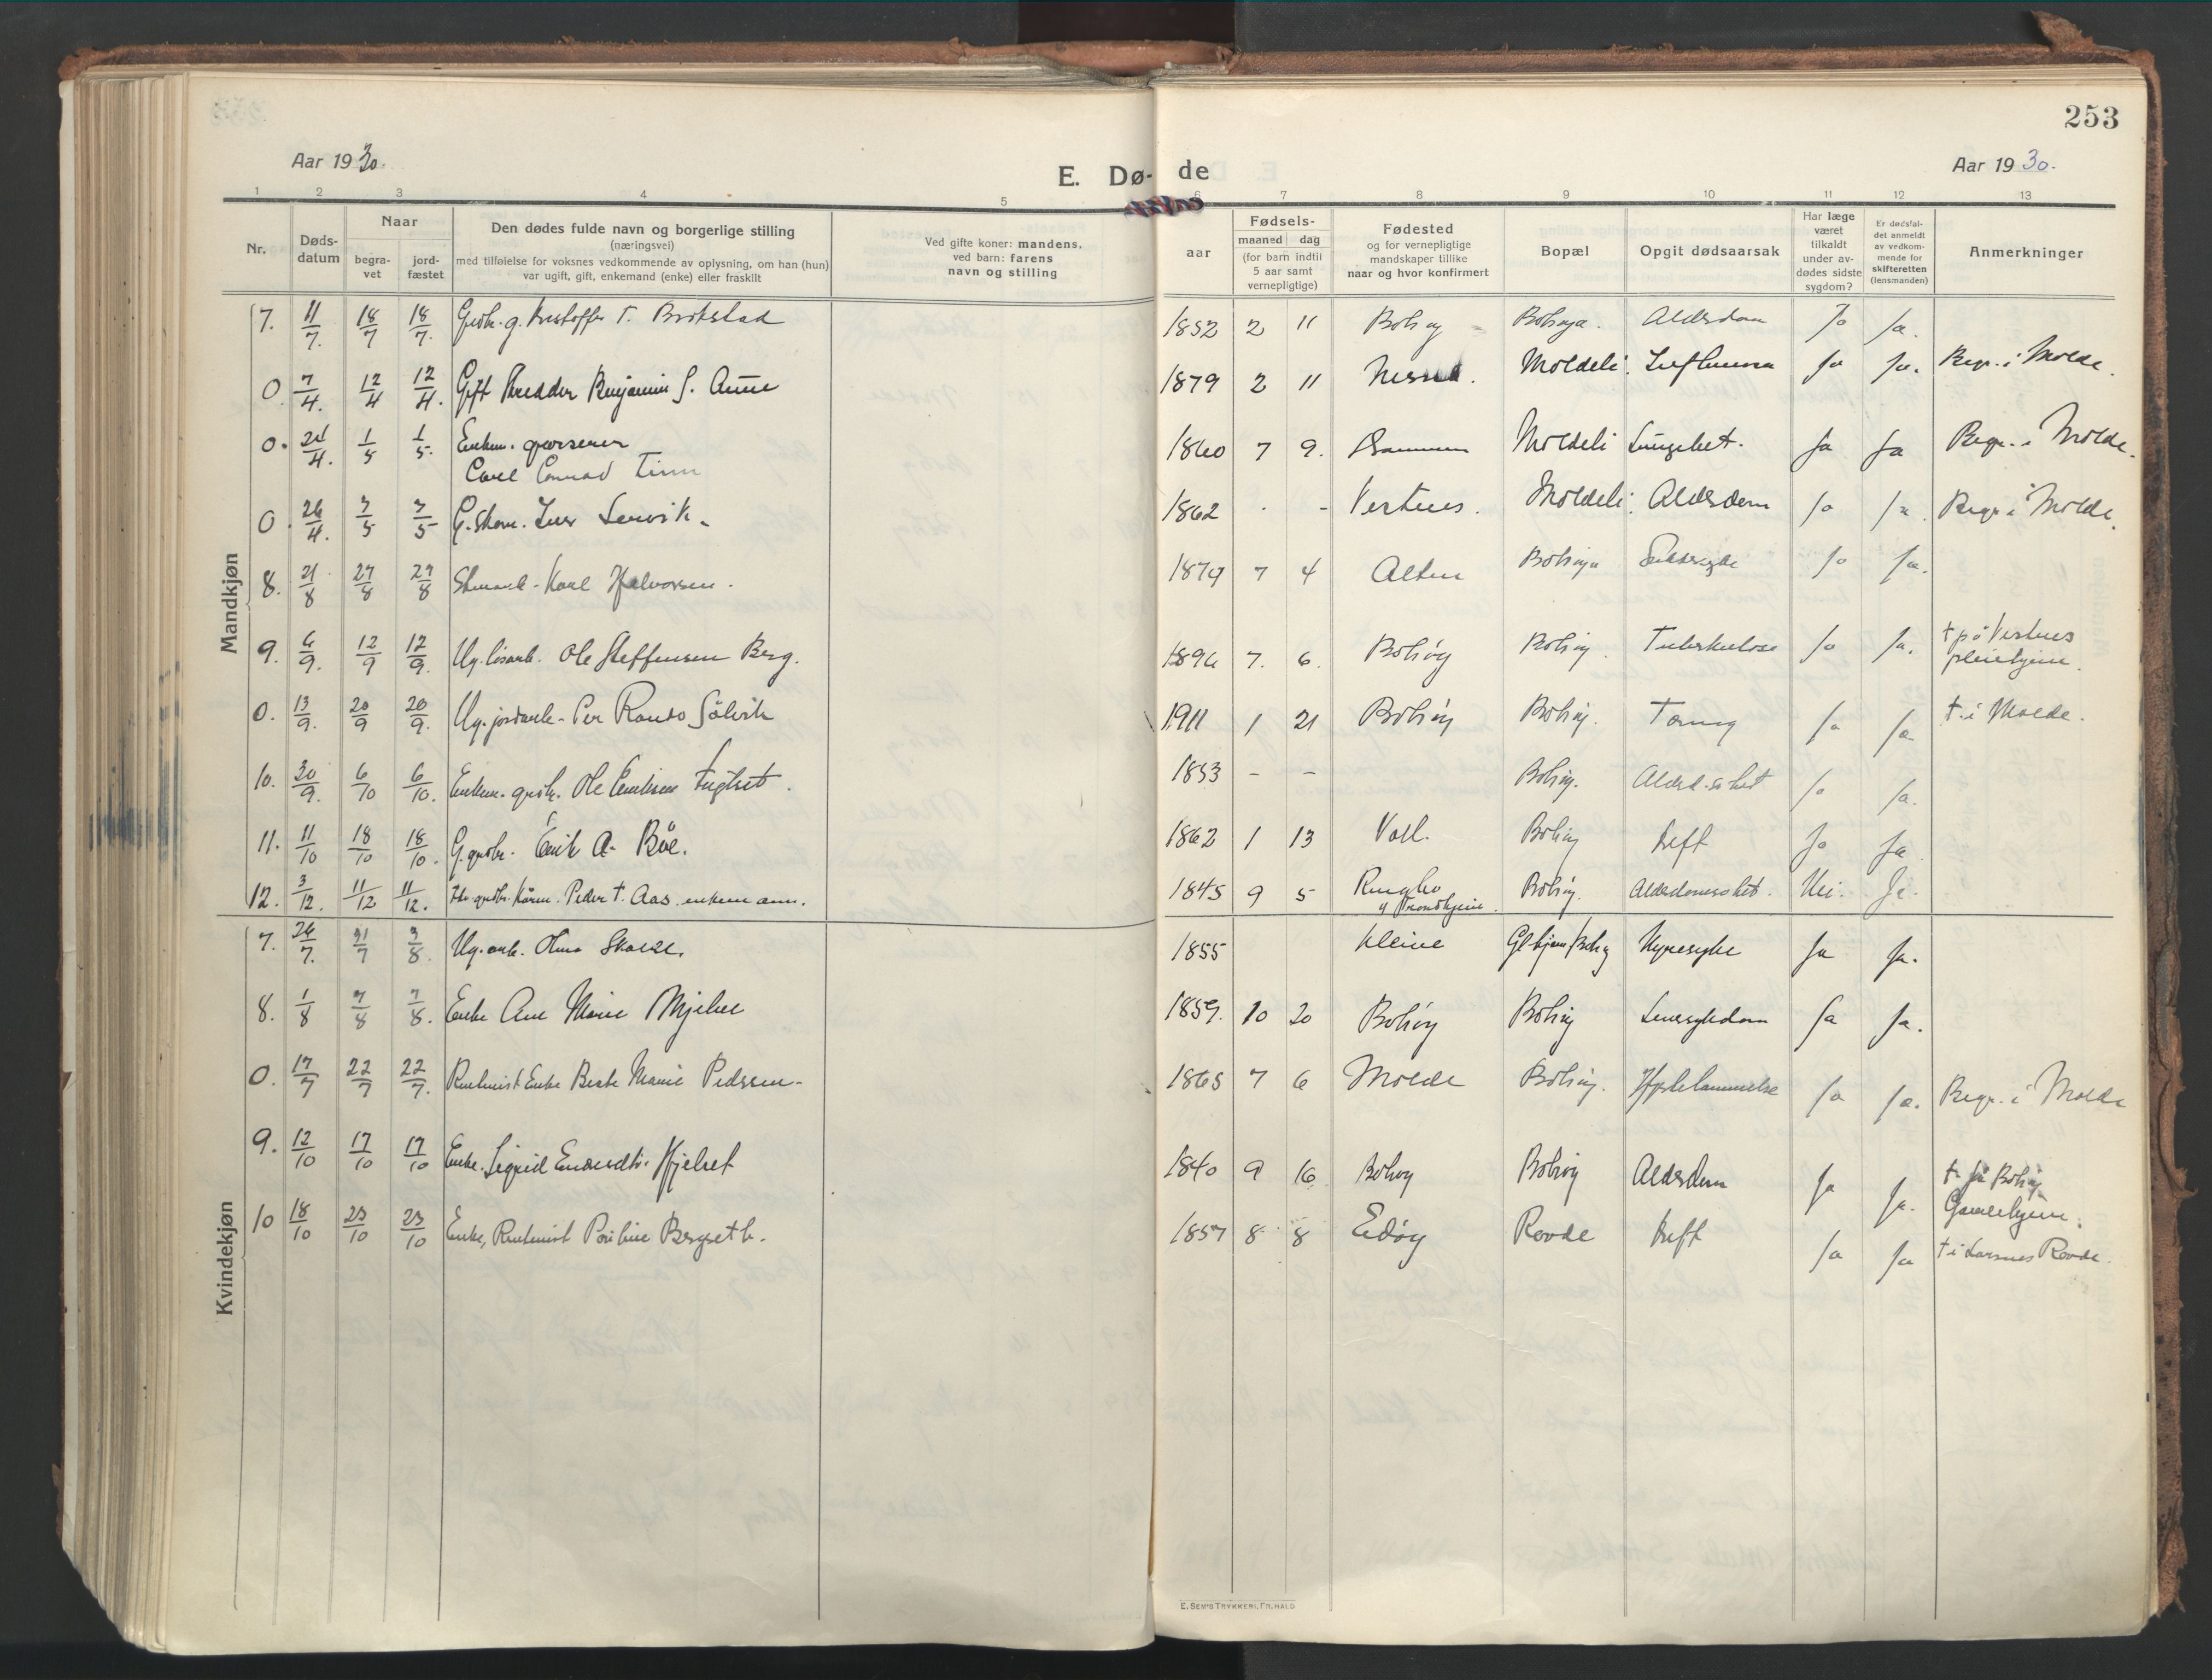 253
Aar 1930.
E. Dø- de
Aar 1930.
1 2 3 4 5 6 7 8 9 10 11 12 13
Nr.
Døds-
datum
Naar
begra-
vet
jord-
fæstet
Den dødes fulde navn og borgerlige stilling
(næringsvei)
med tilføielse for voksnes vedkommende av oplysning, om han (hun)
var ugift, gift, enkemand (enke) eller fraskilt
Ved gifte koner: mandens,
ved barn: farens
navn og stilling
aar
Fødsels-
maaned dag
(for barn indtil
5 aar samt
vernepligtige)
Fødested
og for vernepligtige
mandskaper tillike
naar og hvor konfirmert
Bopæl
Opgit dødsaarsak
Har læge
været
tilkaldt
under av-
dødes sidste
sygdom?
Er dødsfal-
det anmeldt
av vedkom-
mende for
skifteretten
(lensmanden)
Anmerkninger
Mandkjøn
7. 11/7. 18/7 18/7. Gbr. g. Kristoffer T. Brokstad 1852 2 11 Bolsøy Bolsøya. Alderdom Ja Ja.
0. 7/4. 12/4 12/4. Gift Skredder Benjamin S. Aune 1879 2 11 Moldeli. Ja Ja. Begr. i Molde.
0. 24/4. 1/5 1/5. Enkem. grosserer 1860 7 9. Drammen Moldeli Lungebet. Ja Ja Begr. i Molde.
Carl Conrad Tinn
0. 26/4. 3/5 3/5 G. skom. Iver Lervik. 1862 - - Vestnes. Moldeli. Alderdom Ja Ja. Begr. i Molde.
8. 21/8 27/8 27/8 Karl Halvorsen. 1879 7 4 Alten Bolsøya Ja Ja.
9. 6/9. 12/9 12/9. Ug. løsarb. Ole Steffensen Berg. 1896 7. 6. Bolsøy Bolsøy. Tuberkulose Ja Ja. † på Vestnes
pleiehjem.
0. 13/9. 20/9 20/9. Ug. jordarb. Per Rando Sølvik 1911 1 21 Bolsøy Bolsøy. Ja Ja † i Molde.
10. 30/9. 6/10 6/10. Enkem. gbr. Ole Eriksen Fuglset. 1853 - - Bolsøy. Ja Ja.
11. 11/10 18/10 18/10. G. gbr. Erik A. Bøe. 1862 1 13 Voll. Bolsøy Kreft Ja Ja
12. 3/12. 11/12 11/12. Peder T. Aas. enkemann. 1845 9 5 Bolsøy. Nei. Ja.
Trondhjem.
Kvindekjøn
7. 26/7. 31/7 3/8. Ug. arb. Olma Skorse. 1855 Kleive Glhjem Bolsøy Nyresyke Ja Ja.
8. 1/8 7/8 7/8. Enke Ane Marie Mjelve 1859. 10 20 Bolsøy Bolsøy Leversykdom Ja Ja.
0. 17/7 22/7 22/7. Rentenist Enke Beate Marie Pedersen 1865 7 6 Molde Bolsøy. Hjertelammelse Ja Ja. Begr. i Molde
9. 12/10 17/10 17/10 Enke. Sigrid Hjelset 1840 9 16. Bolsøy Bolsøy Alderdom Ja Ja. † på Bolsøy
Gamlehjem.
10 18/10 23/10 23/10 Enke, Rentenist Pauline Bergseth. 1857 8 8 Edøy Rovde Kreft Ja Ja † i Larsnes Rovde.
E. SEM'S TRYKKERI, FR. HALD